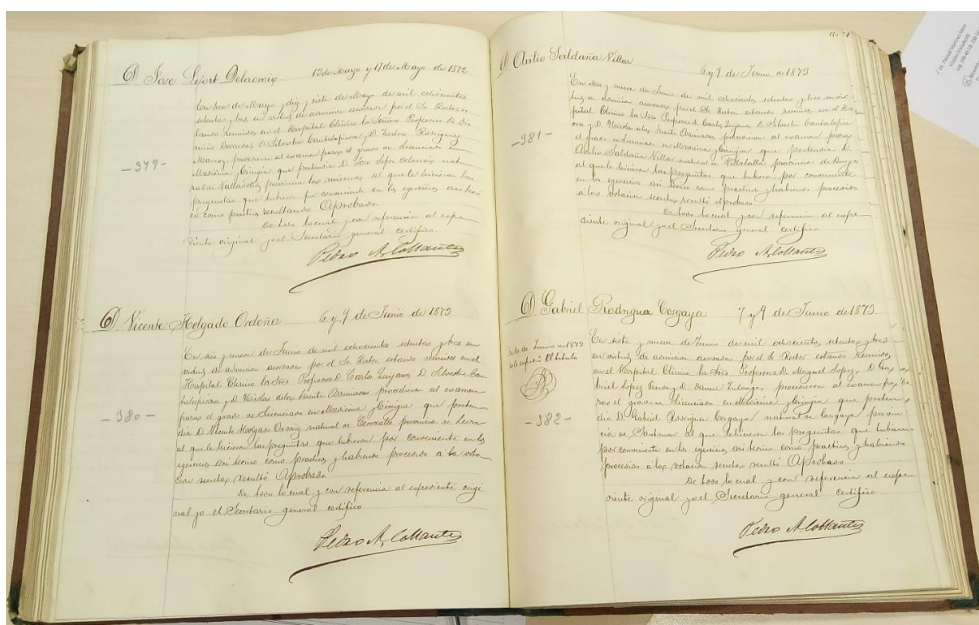 D. Jose Lefort Delacroix 13 de Mayo y 17 de Mayo de 1872
En tres de Mayo y diez y siete de Mayo de mil ochocientos
setenta y tres en de admision acordada por el Sr. Rector
reunidos en el Hospital Clinico los Señores Profesores D.
D. Silvestre Cantalapiedra y D. Rodriguez
procedieron al examen para el grado de Licenciado en
Medicina y Cirugia que pretendia D. Jose Lefort Delacroix natu-
ral de Valladolid provincia de la misma al que le hicieron las
preguntas que tubieron por conveniente en los egercicios asi teori-
co como practico resultando Aprobado
De todo lo cual y con referencia al espe-
diente original yo el Secretario general certifico.
Pedro A. Collantes
-379-
D. Vicente Holgado Ordoñez 6 y 9 de Junio de 1873
En seis y nueve de Junio de mil ochocientos setenta y tres en
virtud de admision acordada por el Sr. Rector estando reunidos en el
Hospital Clinico los Sres. Profesores D. Carlos D. Silvestre Can-
talapiedra y D. Nicolas de la Fuente Arrimadas procedieron al examen
para el grado de Licenciado en Medicina y Cirugia que preten-
dia D. Vicente Holgado natural de provincia de
al que le hicieron las preguntas que tubieron por conveniente en los
egercicios asi teorico como practico y habiendo procedido a la vota-
cion secreta resultó Aprobado
De todo lo cual y con referencia al espediente origi-
nal yo el Secretario general certifico.
Pedro A. Collantes
-380-
D. Saldaña Villar 6 y 9 de Junio de 1873
En seis y nueve de Junio de mil ochocientos setenta y tres en vir-
tud de admision acordada por el Sr. Rector estando reunidos en el Hos-
pital Clinico los Sres. Profesores D. Carlos D. Silvestre Cantalapie-
dra y D. Nicolas de la Fuente Arrimadas procedieron al examen para
el grado de Licenciado en Medicina y Cirugia que pretendia D.
Saldaña Villar natural de provincia de Burgos
al que le hicieron las preguntas que tubieron por conveniente
en los egercicios asi teorico como practico y habiendo procedido
a la votacion secreta resultó aprobado
De todo lo cual y con referencia al espe-
diente original yo el Secretario general certifico.
Pedro A. Collantes
-381-
D. Gabriel Rodriguez Cosgaya 7 y 9 de Junio de 1873
En siete y nueve de Junio de mil ochocientos setenta y tres
en virtud de admision acordada por el Sr. Rector estando reunidos
en el Hospital Clinico los Sres. Profesores D. Miguel Lopez, D. Ga-
briel Lopez y D. Daniel Zuloaga, procedieron al examen pa-
ra el grado de Licenciado en Medicina y Cirugia que preten-
dia D. Gabriel Rodriguez Cosgaya natural de Cosgaya provin-
cia de Santander al que le hicieron las preguntas que tubieron
por conveniente en los egercicios asi teorico como practico y habiendo
procedido a la votacion secreta resultó Aprobado
De todo lo cual y con referencia al espe-
diente original yo el Secretario general certifico.
Pedro A. Collantes
de Junio de 1873
se le espidió el titulo
-382-